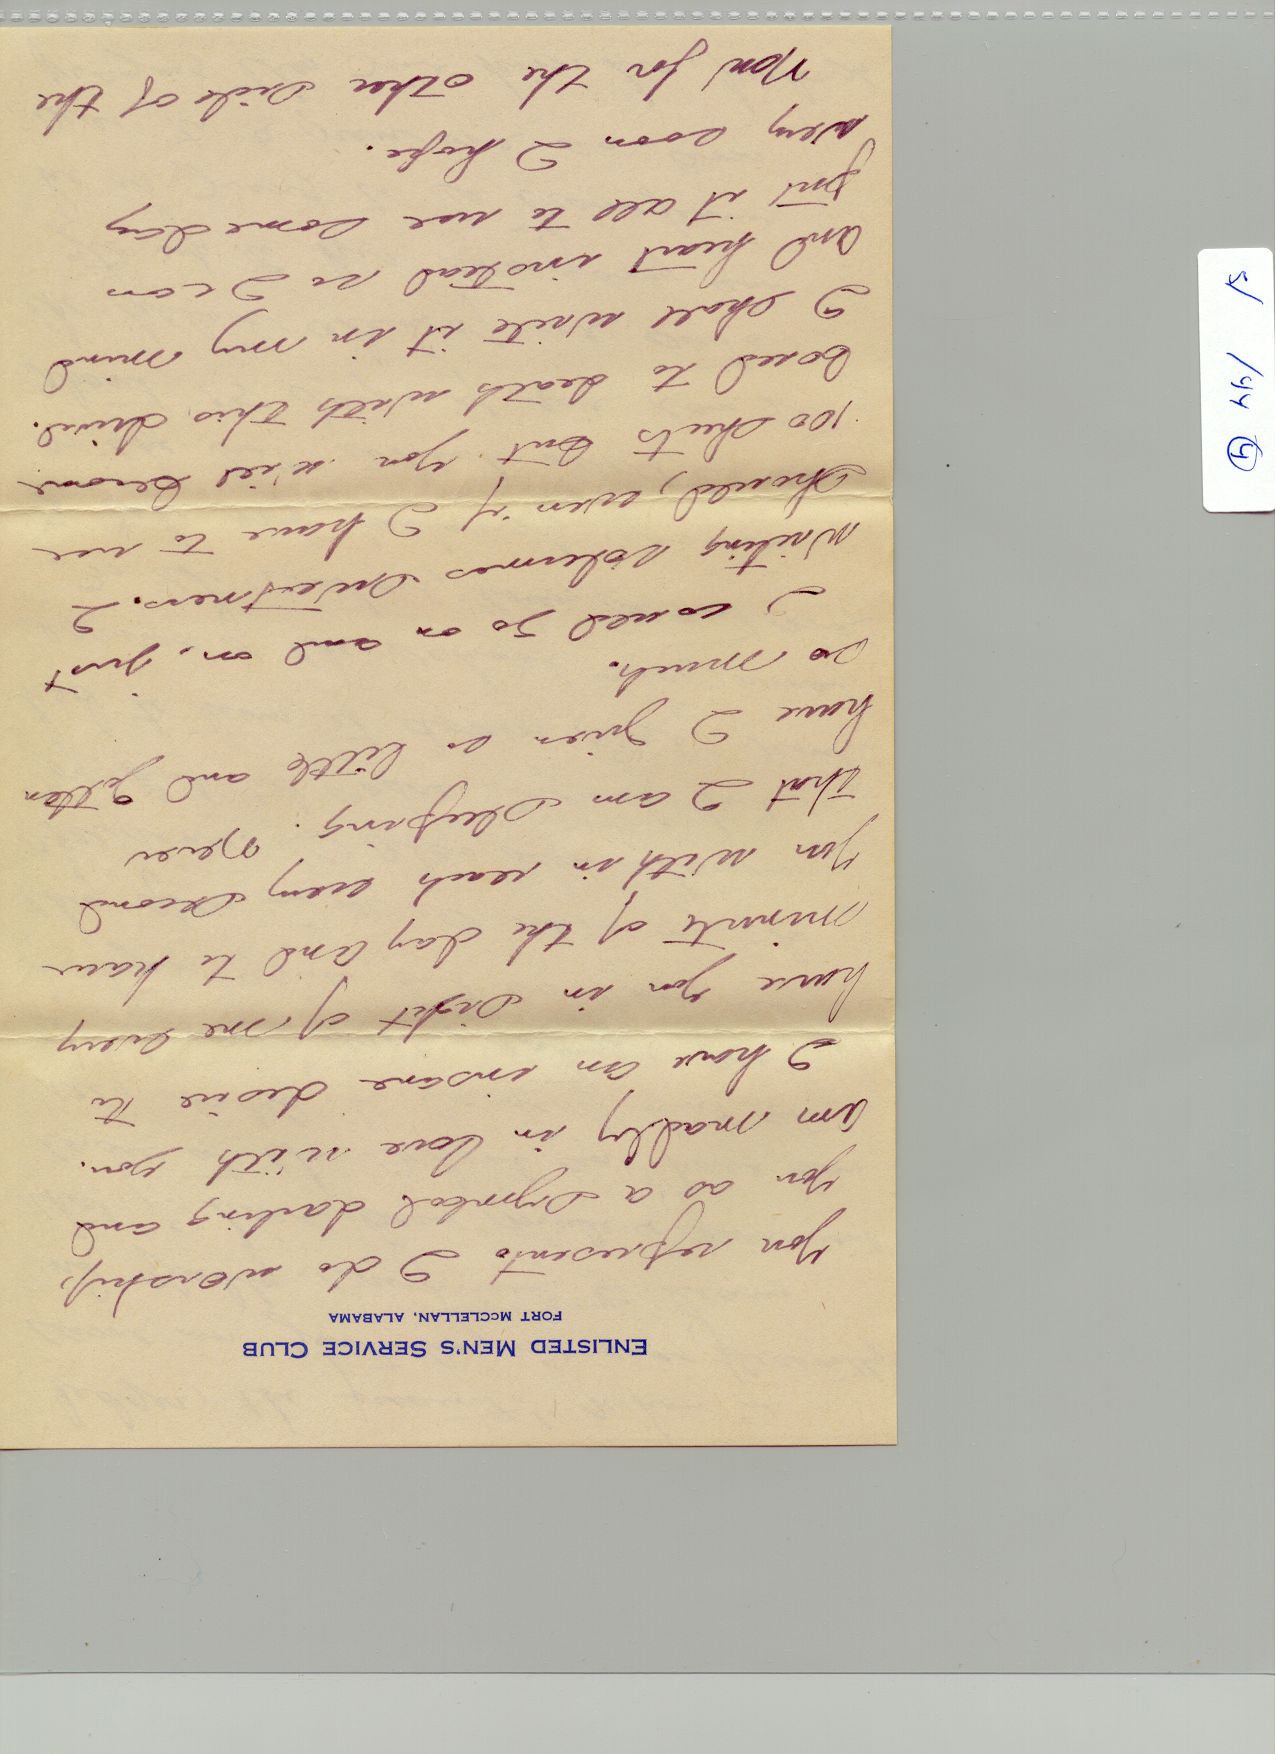 ENLISTED MEN'S SERVICE CLUB
FORT McCLELLAN, ALABAMA
you represent. I do worship
you as a symbol darling and
am madly in love with you.
I have an insane desire to
have you in sight of me every
minute of the day and to have
you with in reach every second
that I am sleeping. Never
have I given so little and gotten
so much.
I could go on and on, just
writing volumes sweetness. I
should, even if I have to use
100 sheets but you will become
bored to death with this drivel.
I shall write it in my mind
and heart instead so I can
put it all to use someday
very soon I hope.
Now for the other side of the